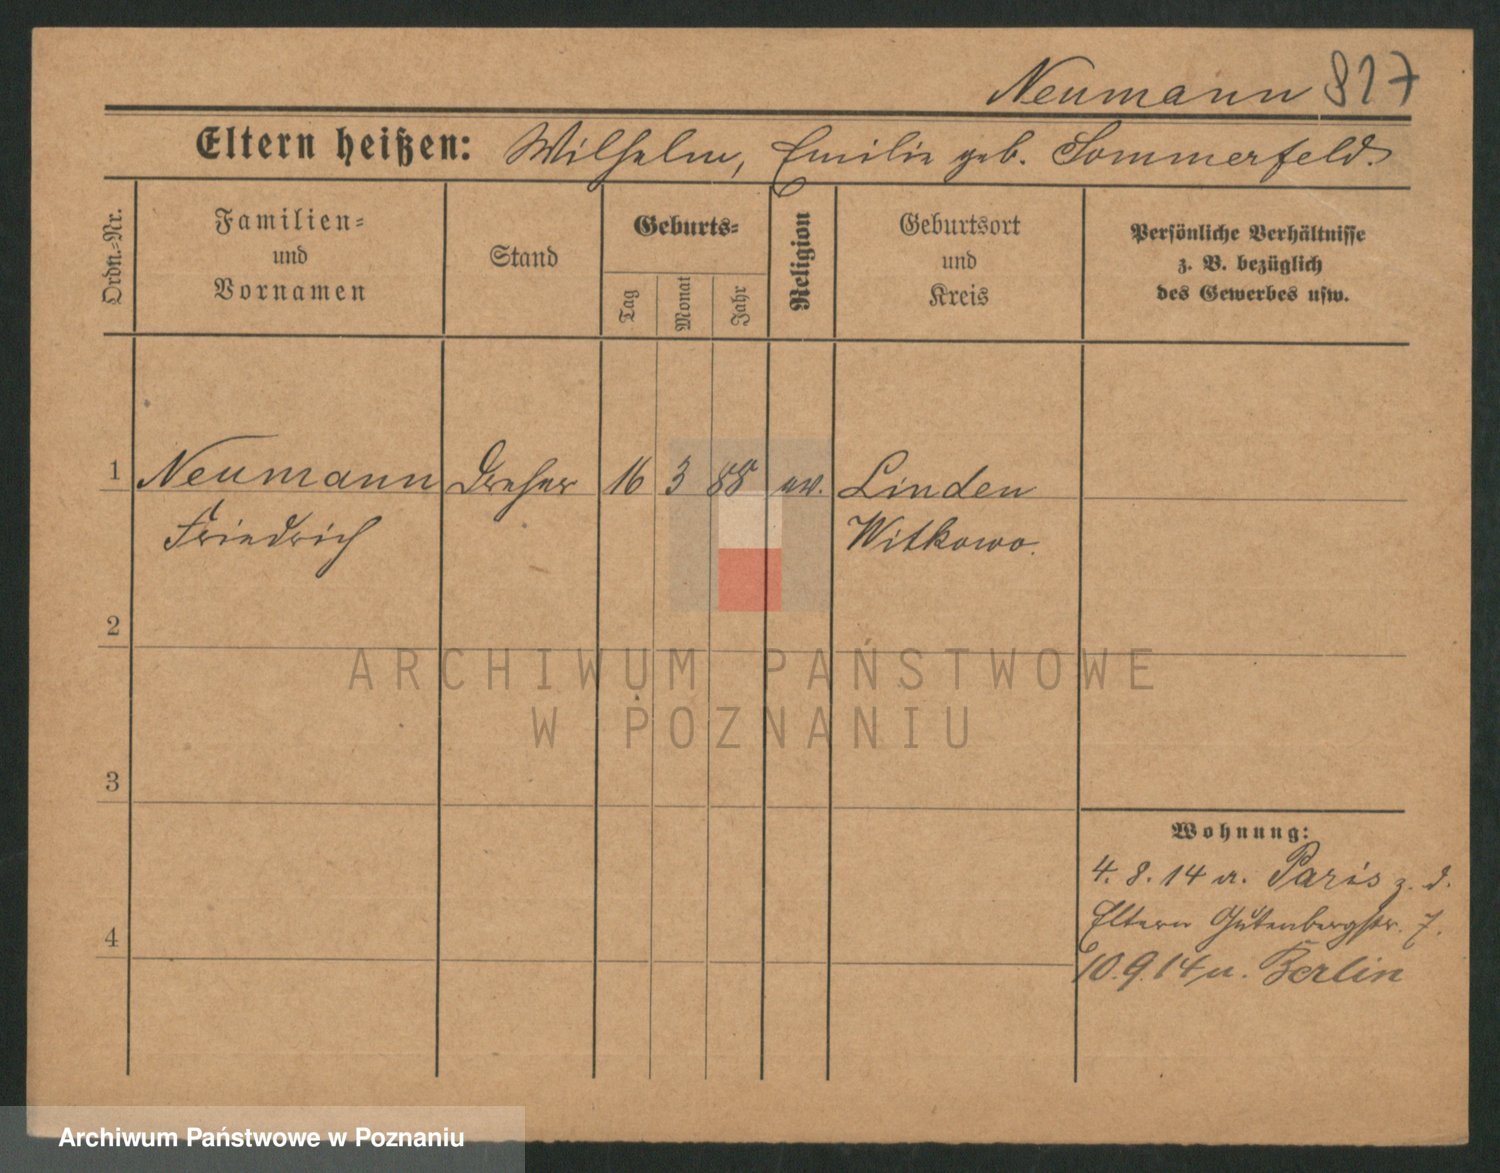 Neumann 827
Eltern heißen: Wilhelm, Emilie geb. Sommerfeld.
Ordn.=Nr.
Familien=
und
Vornamen
Stand
Geburts=
Tag
Monat
Jahr
Religion
Geburtsort
und
Kreis
Persönliche Verhältnisse
z. B. bezüglich
des Gewerbes usw.
1 Neumann Dreher 16 3 88 ev. Linden
Friedrich Witkowo.
2
ARCHIWUM PAŃSTWOWE
W POZNANIU
3
Wohnung:
4. 8. 14 a. Paris z. d.
Eltern Gutenbergstr. 7.
4
10.9.14 n. Berlin
Archiwum Państwowe w Poznaniu